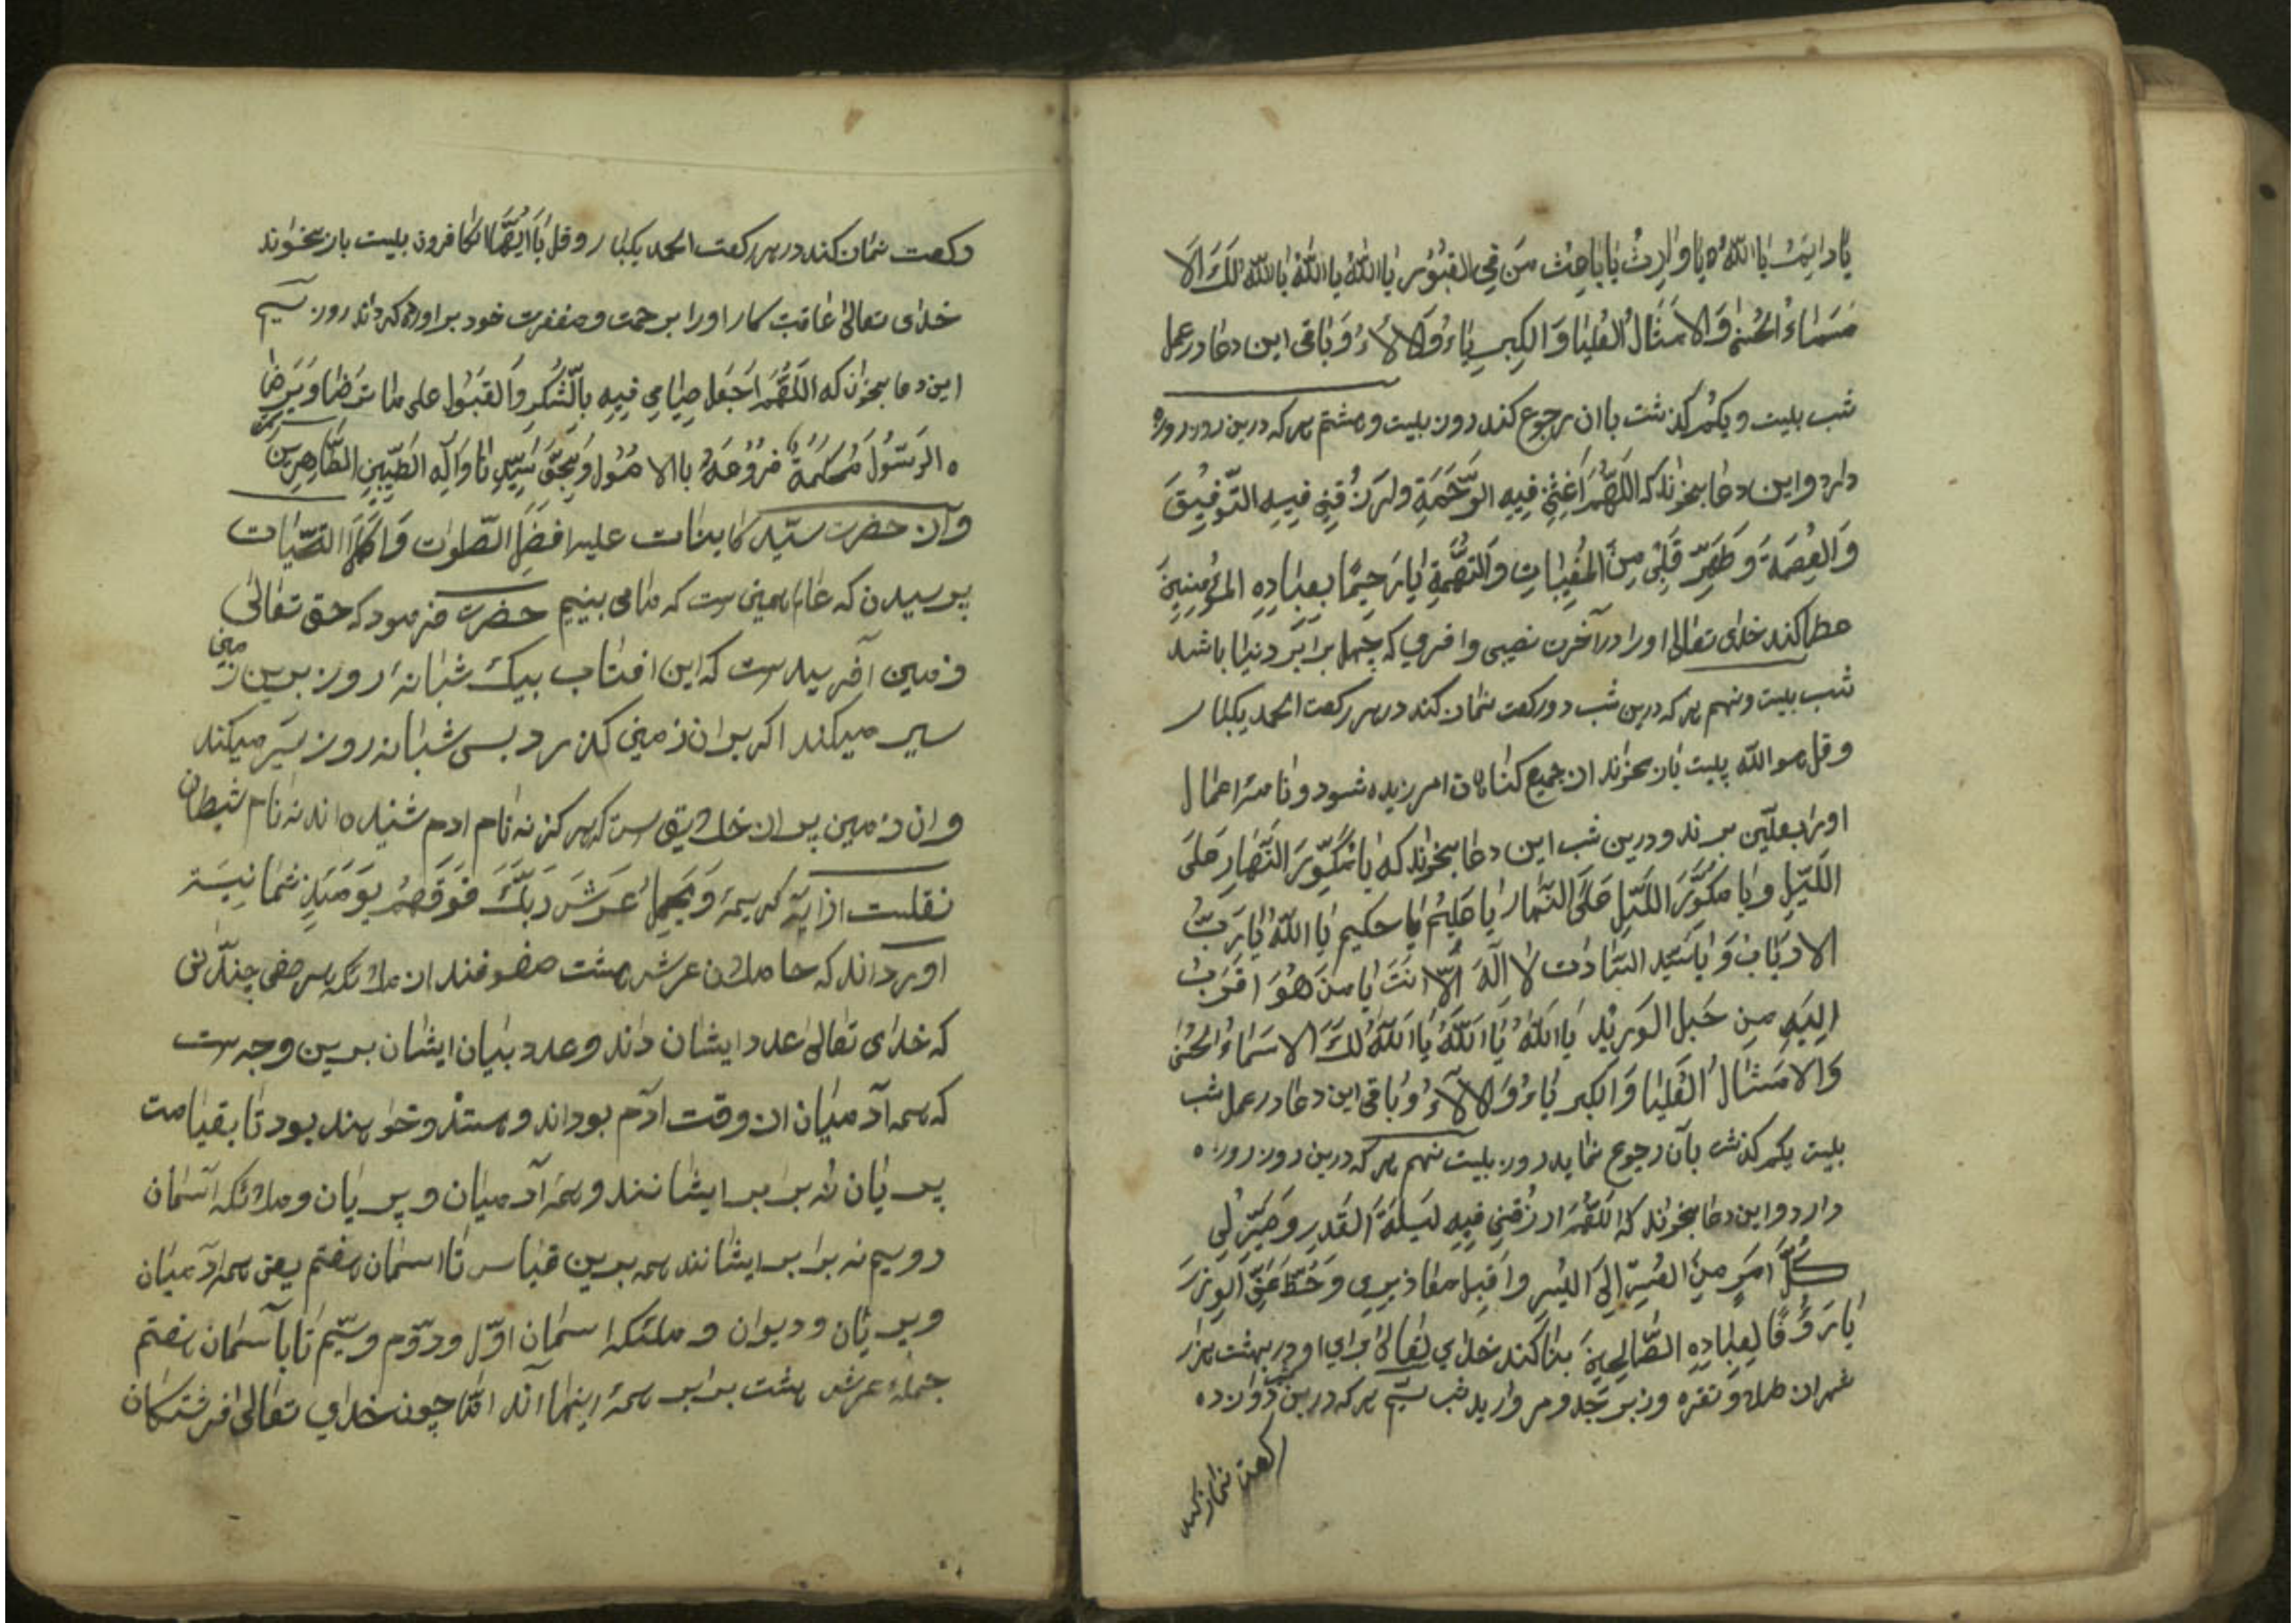 یا دایم یا الله یا وارث یا باعث من فی القبور یا الله یا الله یا الله لک الا
سماء الحسنی والامثال العلیا والکبریاء والالاء و باقی این دعا در عمل
شب بیست و یکم گذشت باان رجوع کند روز بیست و هشتم هر که درین روز روزه
دارد و این دعا بخواند که اللهم اغثنی فیه الرحمة وارزقنی فیه التوفیق
والعصمة و طهر قلبی من المغیبات والتهمة یا رحیما بعباده المؤمنین
عطا کند خدای تعالی او را در آخرت نصیبی وافر می که چهل برابر دنیا باشد
شب بیست و نهم هر که درین شب دو رکعت نماز کند در هر رکعت الحمد یکبار
و قل هو الله بیست بار بخواند از جمیع کناهان امرزیده شود و نامه اعمال
اورا بعلّین برند و درین شب این دعا بخواند که یا مکور النهار علی
اللیل و یا مکور اللیل علی النهار یا علیم یا حکیم یا الله یا رب
الارباب و یا سید السادات لا اله الا انت یا من هو اقرب
الیه من حبل الورید یا الله یا الله یا الله لک الاسماء الحسنی
والامثال العلیا والکبریاء والآلاء و باقی این دعا در عمل شب
بیست یکم کذشت بآن رجوع نماید روز بیست نهم هر که درین روز روزه
دارد و این دعا بخواند که اللهم ارزقنی فیه لیلة القدر و صیر لی
کل امر من العسر الی الیسر واقبل معاذیری و حط عنی الوزر
یا رؤفا لعباده الصالحین بنا کند خدای تعالی برای او در بهشت هزار
شهر از طلا و نقره و زبرجد و مروارید شب سیم هر که درین شب دوازده
رکعت نماز کند
رکعت نماز کند در هر رکعت الحمد یکبار و قل یا ایها الکافرون بیست بار بخواند
خدای تعالی عاقبت کار او را بر حمت و مغفرت خود براورده کرداند روز سیم
این دعا بخواند که اللهم اجعل صیامی فیه بالشکر والقبول علی ما ترضا و یرضا
ه الرسول محکمة فروعه بالاصول و بحق سیدنا وآله الطیبین الطاهرین
و آن حضرت سید کاینات علیه افضل الصلوات و اکمل التحیات
پرسیدن که عالم همین ست که ما می بینیم حضرت فرمود که حق تعالی
زمین آفریدست که این افتاب بیک شبانه روز برین زمین
سیر میکند اکر بران زمینی کذرد بسی شبانه روز سیر میکند
و ان زمین پر از خلایق ست که هرکز نه نام ادم شنیده اند نه نام شیطان
نقلست از ایه کریمه و یحمل عرش ربک فوقهم یومئذ ثمانیة
اورداند که حاملان عرش هشت صفوفند از ملائکه هر صفی چندانی
که خدای تعالی عدد ایشان داند و عدد بیان ایشان برین وجه ست
که همه آدمیان از وقت ادم بوداند و هستند و خواهند بود تا بقیامت
پریان نه برابر ایشانند و همه آدمیان و پریان و ملائکه آسمان
دویم نه برابر ایشانند همه برین قیاس تا اسمان هفتم یعنی همه آدمیان
و پریان و دیوان و ملئکه اسمان اوّل و دوّم و سیّم تا بآسمان هفتم
جمله عرش هشت برابر همه اینها اند امّا چون خدای تعالی فرشتکان